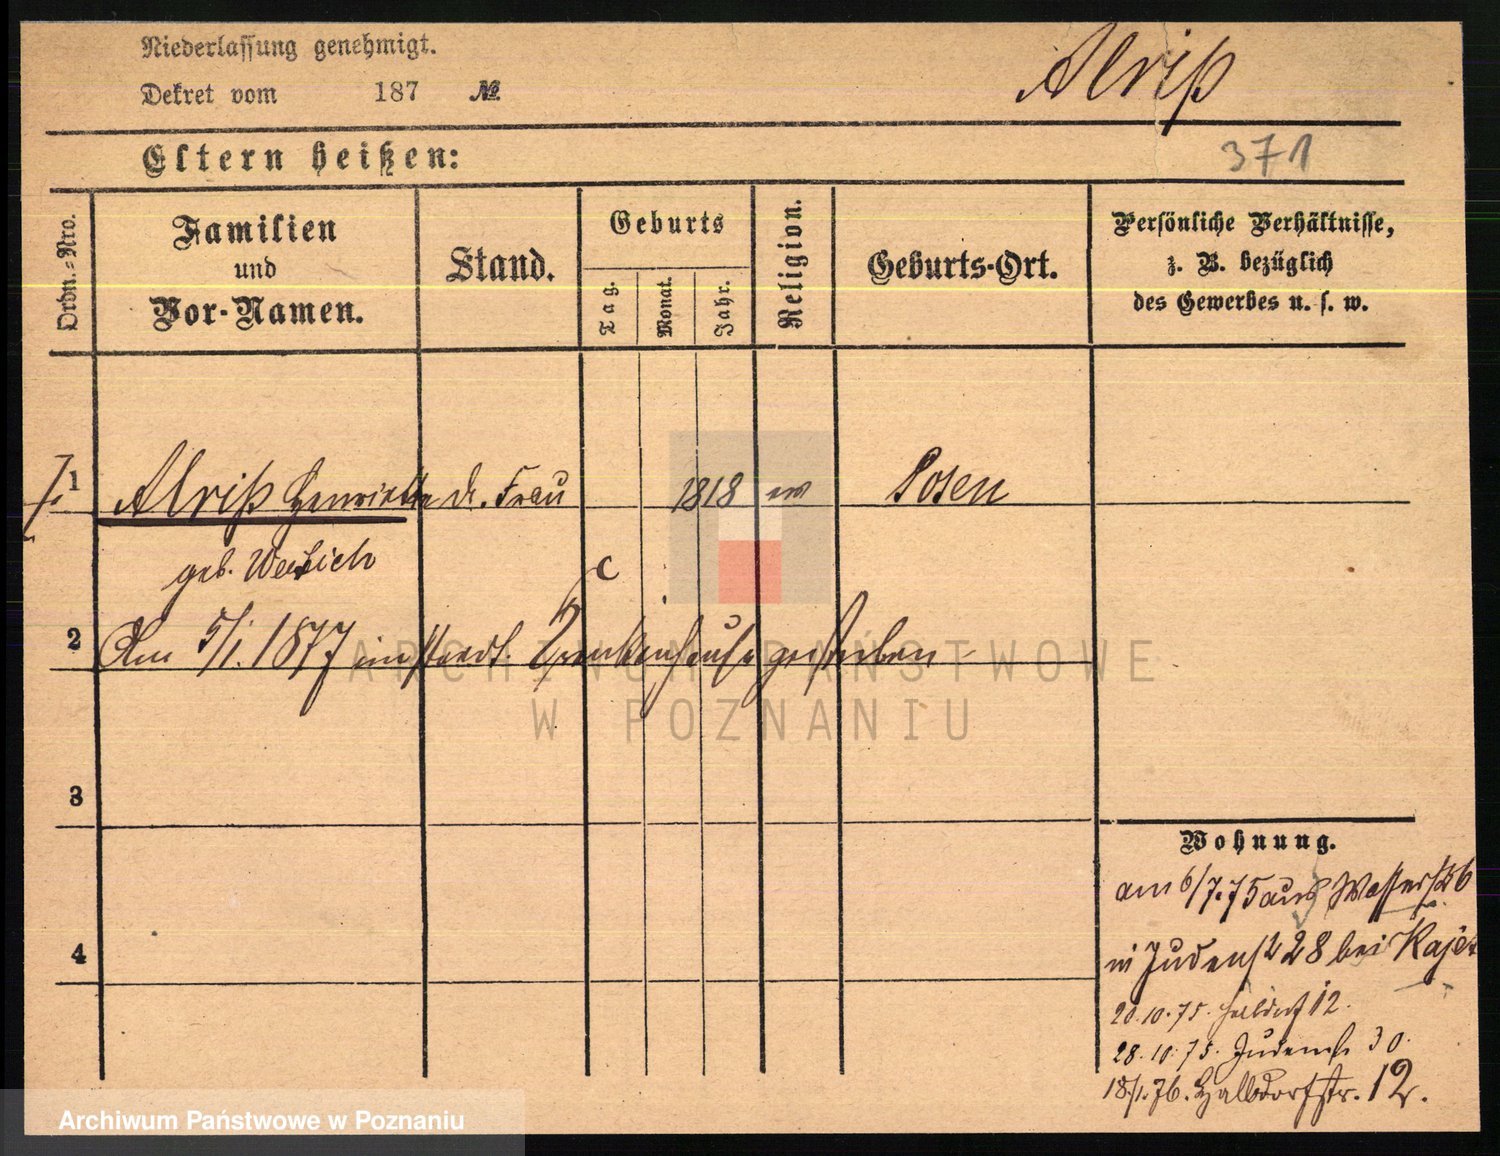 Niederlassung genehmigt.
Dekret vom 187 No.
Alriß
Eltern heißen:
371
Ordn.-Nro.
Familien
und
Vor-Namen.
Stand.
Geburts
Tag.
Monat.
Jahr.
Religion.
Geburts-Ort.
Persönliche Verhältnisse,
z. B. bezüglich
des Gewerbes u. s. w.
1 Alriß Henriette d. Frau 1818 ev Posen
geb.
2 Am 5/1. 1877 im städt. Krankenhause gestorben
3
4
Wohnung.
am 6/7.75 aus Wasserstr 6
in Judenstr 28 bei
20.10.75. 12.
28.10.75. Judenstr 30.
18/1.76. Halbdorfstr. 12.
ARCHIWUM PAŃSTWOWE
W POZNANIU
Archiwum Państwowe w Poznaniu